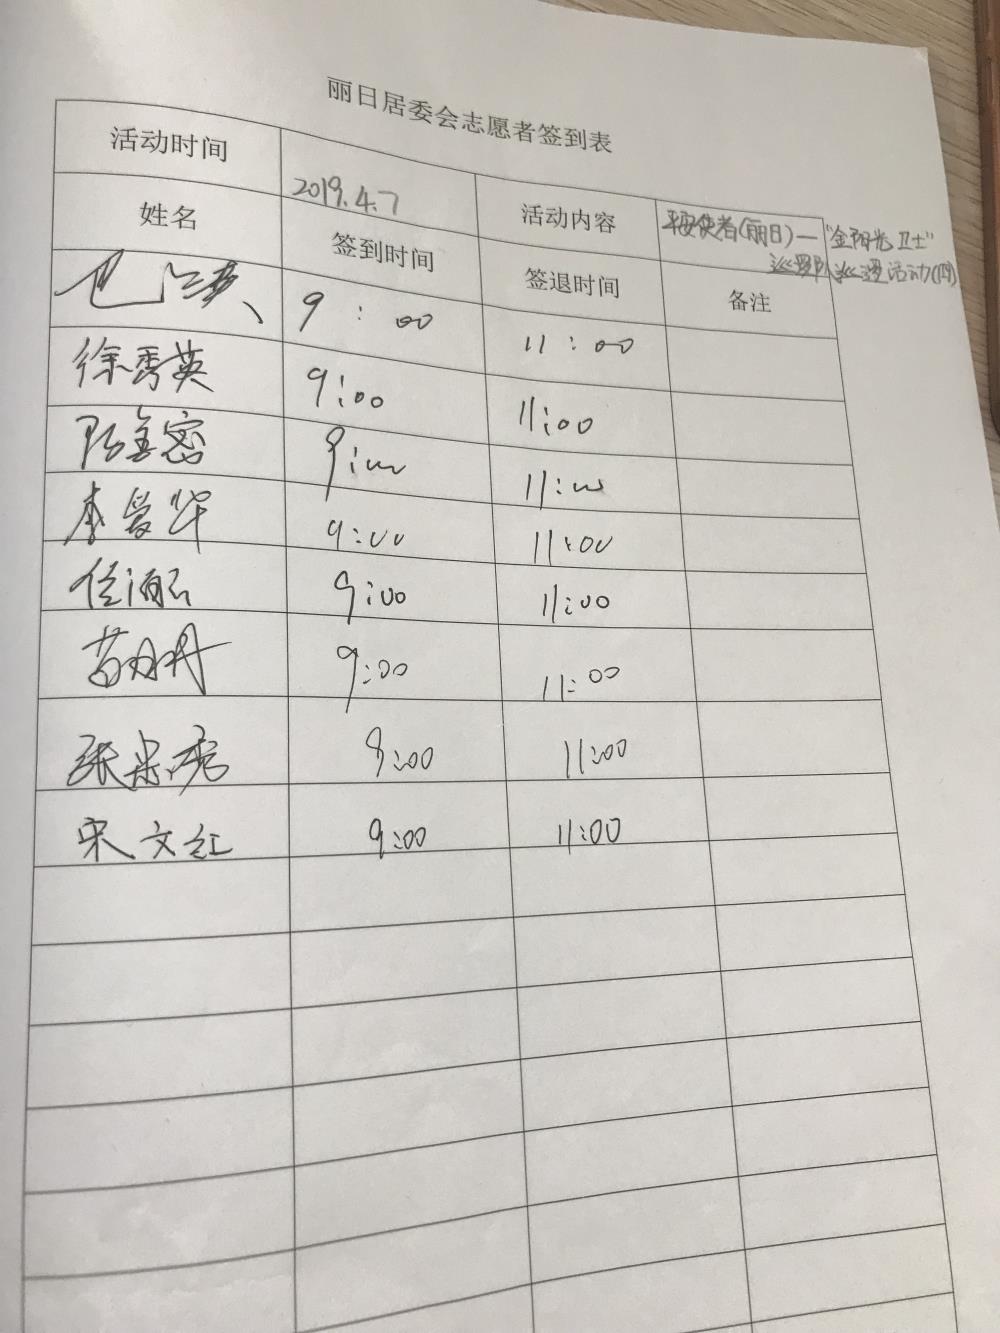 丽日居委会志愿者签到表
活动时间 2019.4.7 活动内容 平安使者(丽日)一"金阳光卫士"
巡逻队巡逻活动(四)
姓名 签到时间 签退时间 备注
9:00 11:00
徐秀英 9:00 11:00
9:00 11:00
李爱华 9:00 11:00
9:00 11:00
苗丹丹 9:00 11:00
张荣秀 9:00 11:00
宋文红 9:00 11:00